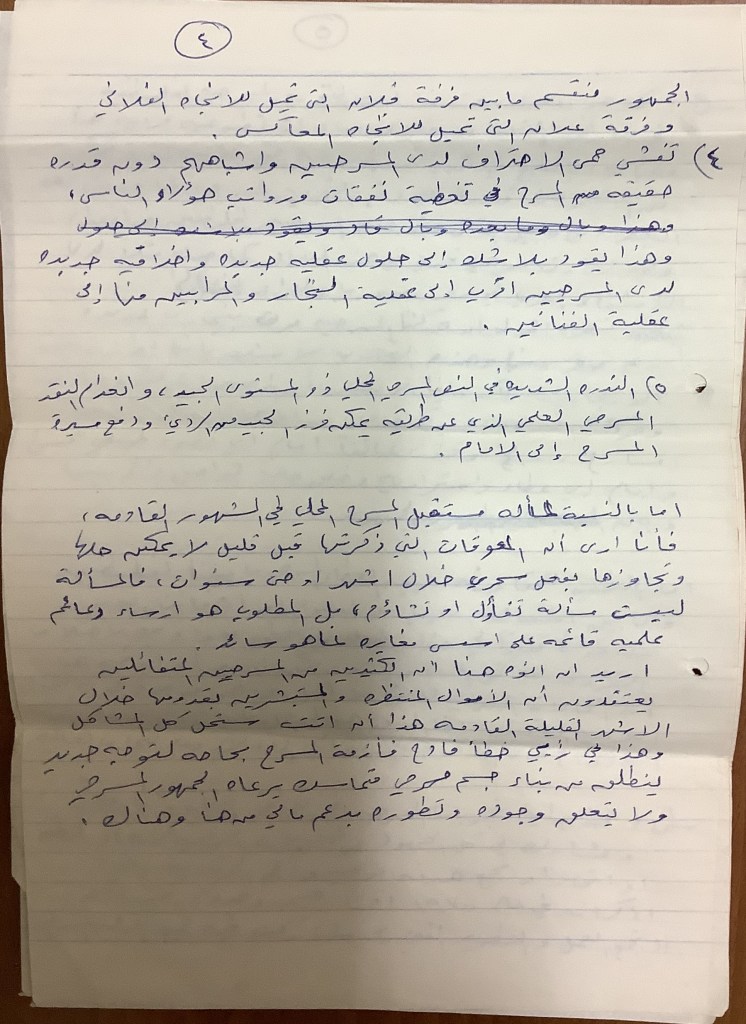 ٤
الجمهور منقسم ما بين فرقة فلان التي تميل للاتجاه الفلاني
وفرقة علان التي تميل للاتجاه المعاكس .
٤) تفشي حمى الاحتراف لدى المسرحيين واشباههم دون قدره
حقيقه من المسرح في تغطية نفقات ورواتب هؤلاء الناس ،
وهذا وبال وما بعده وبال ويقود بلا شك إلى حلول
وهذا يقود بلا شك إلى حلول عقليه جديده واخلاقيه جديده
لدى المسرحيين اقرب إلى عقلية التجار والمرابين منها إلى
عقلية الفنانين .
٥) الندره الشديده في النص المسرحي المحلي ذو المستوى الجيد ، وانعدام النقد
المسرحي العلمي الذي عن طريقه يمكن فرز الجيد من الرديء ودفع مسيرة
المسرح إلى الامام .
اما بالنسبة لمسأله مستقبل المسرح المحلي في الشهور القادمه ،
فأنا ارى أن المعوقات التي ذكرتها قبل قليل لا يمكن حلها
وتجاوزها بفعل سحري خلال اشهر او حتى سنوات ، فالمسألة
ليست مسألة تفاؤل او تشاؤم ، بل المطلوب هو ارساء دعائم
علميه قائمه على اسس مغايره لما هو سائد .
اريد ان انوه هنا أن الكثيرين من المسرحيين المتفائلين
يعتقدون أن الأموال المنتظره والمستبشرين بقدومها خلال
الاشهر القليلة القادمه هذا أن اتت ستحل كل المشاكل
وهذا في رأيي خطأ فادح فأزمة المسرح بحاجه لتوجه جديد
ينطلق من بناء جسم مسرحي متماسك يرعاه الجمهور المسرحي
ولا يتعلق وجوده وتطوره بدعم مالي من هنا وهناك .